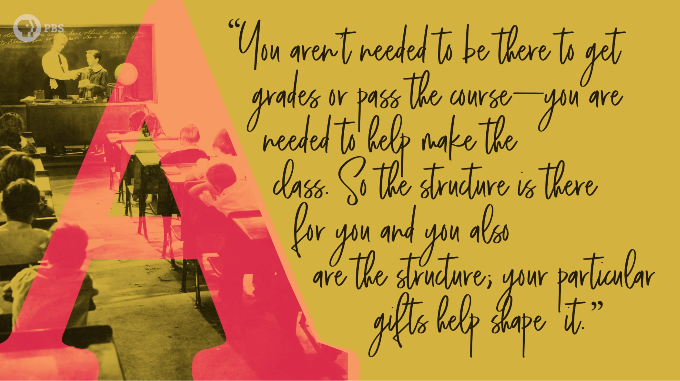 PBS
“You aren't needed to be there to get
grades or pass the course—you are
needed to help make the
class. So the structure is there
for you and you also
are the structure; your particular
gifts help shape it.”
A